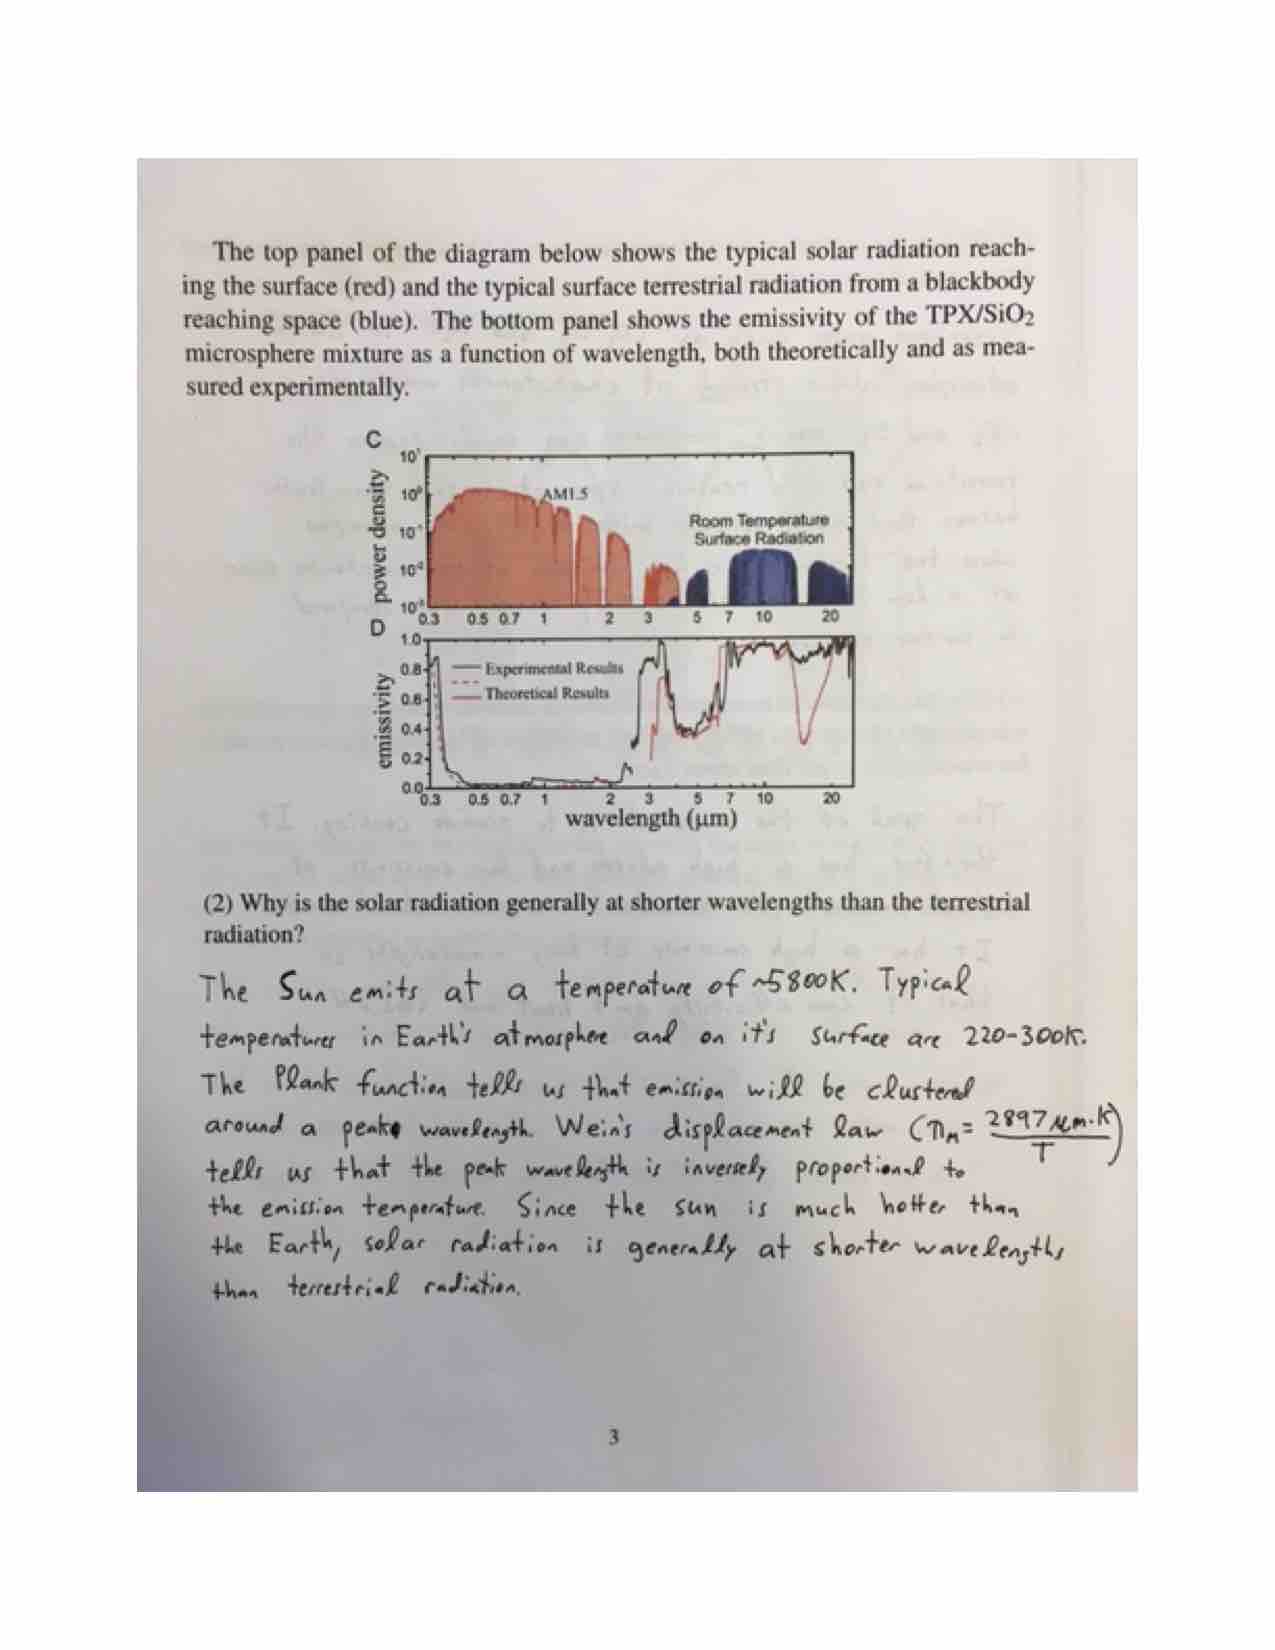 The top panel of the diagram below shows the typical solar radiation reach-
ing the surface (red) and the typical surface terrestrial radiation from a blackbody
reaching space (blue). The bottom panel shows the emissivity of the TPX/SiO₂
microsphere mixture as a function of wavelength, both theoretically and as mea-
sured experimentally.
C
power density
10¹
10⁰
10⁻¹
10⁻²
10⁻³
AM1.5
Room Temperature
Surface Radiation
0.3 0.5 0.7 1 2 3 5 7 10 20
D
emissivity
1.0
0.8
0.6
0.4
0.2
0.0
Experimental Results
Theoretical Results
0.3 0.5 0.7 1 2 3 5 7 10 20
wavelength (μm)
(2) Why is the solar radiation generally at shorter wavelengths than the terrestrial
radiation?
The Sun emits at a temperature of ~5800K. Typical
temperatures in Earth's atmosphere and on it's surface are 220-300K.
The Plank function tells us that emission will be clustered
around a peak wavelength. Wein's displacement law (λm = 2897 μm·K / T)
tells us that the peak wavelength is inversely proportional to
the emission temperature. Since the sun is much hotter than
the Earth, solar radiation is generally at shorter wavelengths
than terrestrial radiation.
3